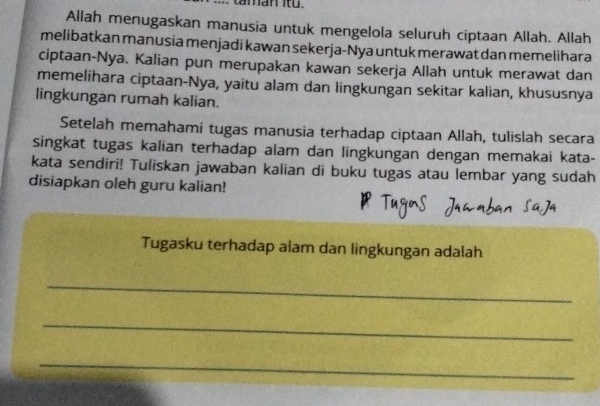 taman itu.
Allah menugaskan manusia untuk mengelola seluruh ciptaan Allah. Allah
melibatkan manusia menjadi kawan sekerja-Nya untuk merawat dan memelihara
ciptaan-Nya. Kalian pun merupakan kawan sekerja Allah untuk merawat dan
memelihara ciptaan-Nya, yaitu alam dan lingkungan sekitar kalian, khususnya
lingkungan rumah kalian.
Setelah memahami tugas manusia terhadap ciptaan Allah, tulislah secara
singkat tugas kalian terhadap alam dan lingkungan dengan memakai kata-
kata sendiri! Tuliskan jawaban kalian di buku tugas atau lembar yang sudah
disiapkan oleh guru kalian!
Tugas Jawaban saja
Tugasku terhadap alam dan lingkungan adalah